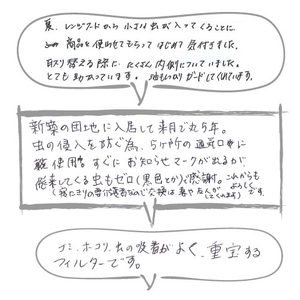 夏、レンジフードから小さな虫が入ってくることに
この商品を使わせてもらってはじめて気付きました。
取り替える際に、たくさん内側についていました。
とても助かっています。油もしっかりガードしてくれています。
新築の団地に入居して来月で丸5年。
虫の侵入を防ぐ為、5ヶ所の通気口に
使用。すぐにお知らせマークが出るが
飛来してくる虫もゼロ(黒目とか)で感謝。これからも
よろしく
(寝たきりの 交換は妻や友人が
してくれます) です。
ゴミ、ホコリ、虫の吸着がよく、重宝する
フィルターです。